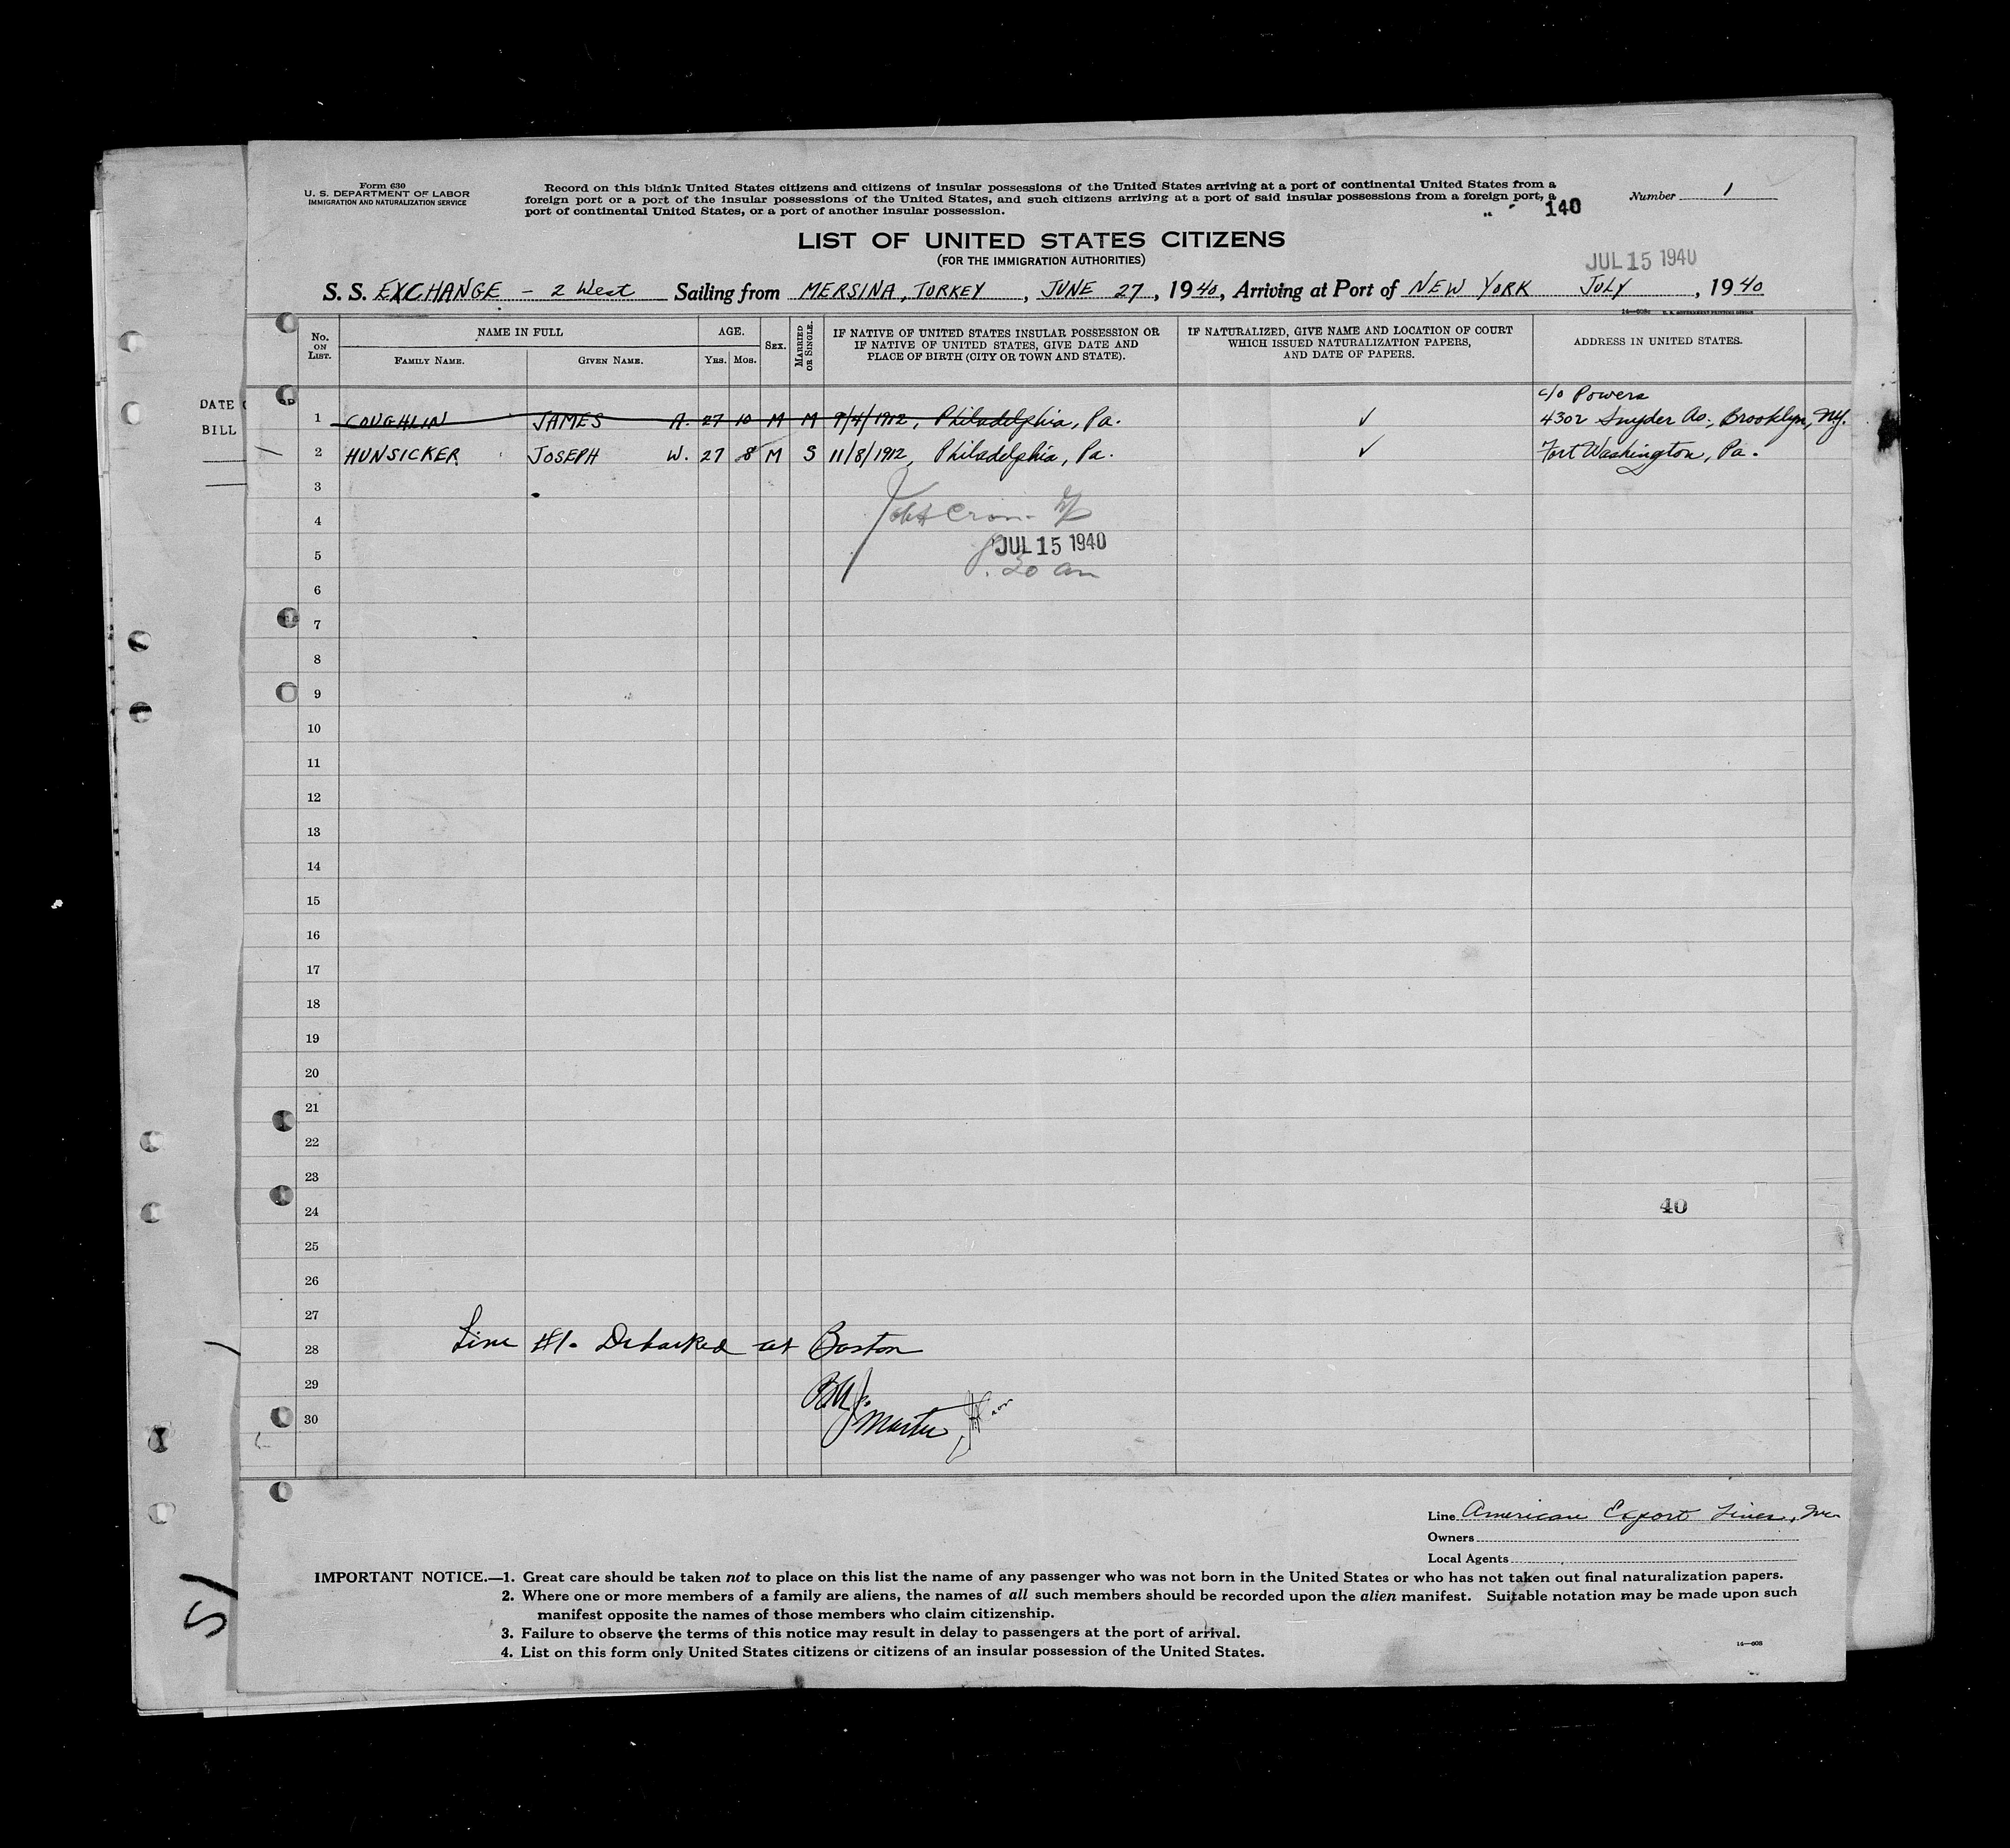 Form 630
U. S. DEPARTMENT OF LABOR
IMMIGRATION AND NATURALIZATION SERVICE
Record on this blank United States citizens and citizens of insular possessions of the United States arriving at a port of continental United States from a
foreign port or a port of the insular possessions of the United States, and such citizens arriving at a port of said insular possessions from a foreign port, a
port of continental United States, or a port of another insular possession.
Number 1
140
LIST OF UNITED STATES CITIZENS
(FOR THE IMMIGRATION AUTHORITIES)
JUL 15 1940
S. S. EXCHANGE - 2 West Sailing from MERSINA, TURKEY, JUNE 27, 1940, Arriving at Port of NEW YORK JULY, 1940
No. ON LIST.
NAME IN FULL
FAMILY NAME.
GIVEN NAME.
AGE.
YRS.
MOS.
SEX.
MARRIED OR SINGLE.
IF NATIVE OF UNITED STATES INSULAR POSSESSION OR
IF NATIVE OF UNITED STATES, GIVE DATE AND
PLACE OF BIRTH (CITY OR TOWN AND STATE).
IF NATURALIZED, GIVE NAME AND LOCATION OF COURT
WHICH ISSUED NATURALIZATION PAPERS,
AND DATE OF PAPERS.
ADDRESS IN UNITED STATES.
DATE
BILL
c/o Powers
1 COUGHLIN JAMES A. 27 10 M M 9/4/1912, Philadelphia, Pa. ✓ 4302 Snyder Av., Brooklyn, NY.
2 HUNSICKER JOSEPH W. 27 8 M S 11/8/1912, Philadelphia, Pa. ✓ Fort Washington, Pa.
3
4
5 JUL 15 1940
6
7
8
9
10
11
12
13
14
15
16
17
18
19
20
21
22
23
24 40
25
26
27
28 Line #1. Debarked at Boston
29
30 Master
Line American Export Lines, Inc
Owners
Local Agents
IMPORTANT NOTICE.—1. Great care should be taken not to place on this list the name of any passenger who was not born in the United States or who has not taken out final naturalization papers.
2. Where one or more members of a family are aliens, the names of all such members should be recorded upon the alien manifest. Suitable notation may be made upon such
manifest opposite the names of those members who claim citizenship.
3. Failure to observe the terms of this notice may result in delay to passengers at the port of arrival.
4. List on this form only United States citizens or citizens of an insular possession of the United States.